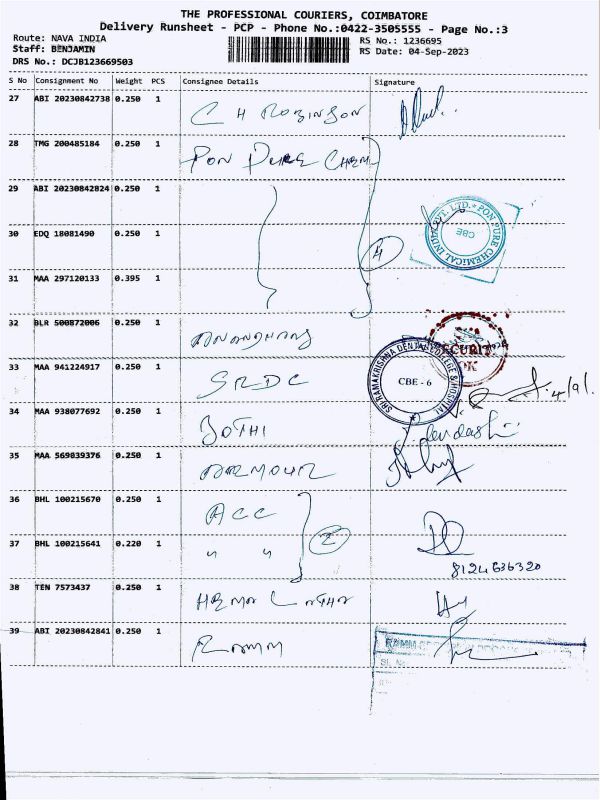 THE PROFESSIONAL COURIERS, COIMBATORE
Delivery Runsheet - PCP - Phone No.:0422-3505555 - Page No.:3
Route: NAVA INDIA
RS No.: 1236695
Staff: BENJAMIN
RS Date: 04-Sep-2023
DRS No.: DCJB123669503
S No Consignment No Weight PCS Consignee Details Signature
27 ABI 20230842738 0.250 1 C H ROBINSON
28 TMG 200485184 0.250 1 PON PURE CHEM
29 ABI 20230842824 0.250 1
PVT. LTD. * PON PURE CHEMICAL INDIA
CBE
30 EDQ 18081490 0.250 1
4
31 MAA 297120133 0.395 1
32 BLR 500872006 0.250 1
SECURITY
OK
33 MAA 941224917 0.250 1 SRDC
SRI RAMAKRISHNA DENTAL COLLEGE & HOSPITAL
CBE - 6
4/9/.
34 MAA 938077692 0.250 1 BOTHI
35 MAA 569039376 0.250 1 ARMOUR
36 BHL 100215670 0.250 1 ACC
2
37 BHL 100215641 0.220 1 " "
8124636320
38 TEN 7573437 0.250 1 HEMA LATHA
39 ABI 20230842841 0.250 1 RAMM
SL. No